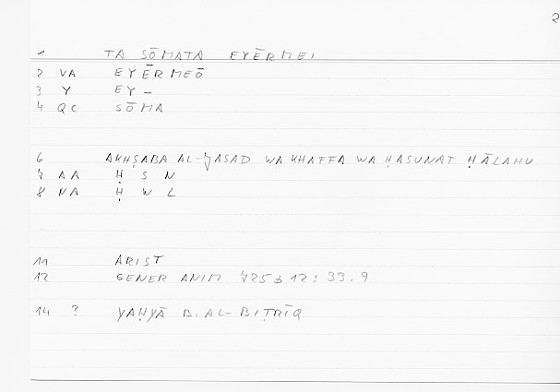 2
1 TA SŌMATA EYĒRMEI
2 VA EYĒRMEŌ
3 Y EY-
4 QC SŌMA
6 AKHṢABA AL-JASAD WA KHAFFA WA ḤASUNAT ḤĀLAHU
7 AA Ḥ S N
8 NA Ḥ W L
11 ARIST
12 GENER ANIM 725 b 12 : 33.9
14 ? YAḤYĀ B. AL-BIṬRĪQ